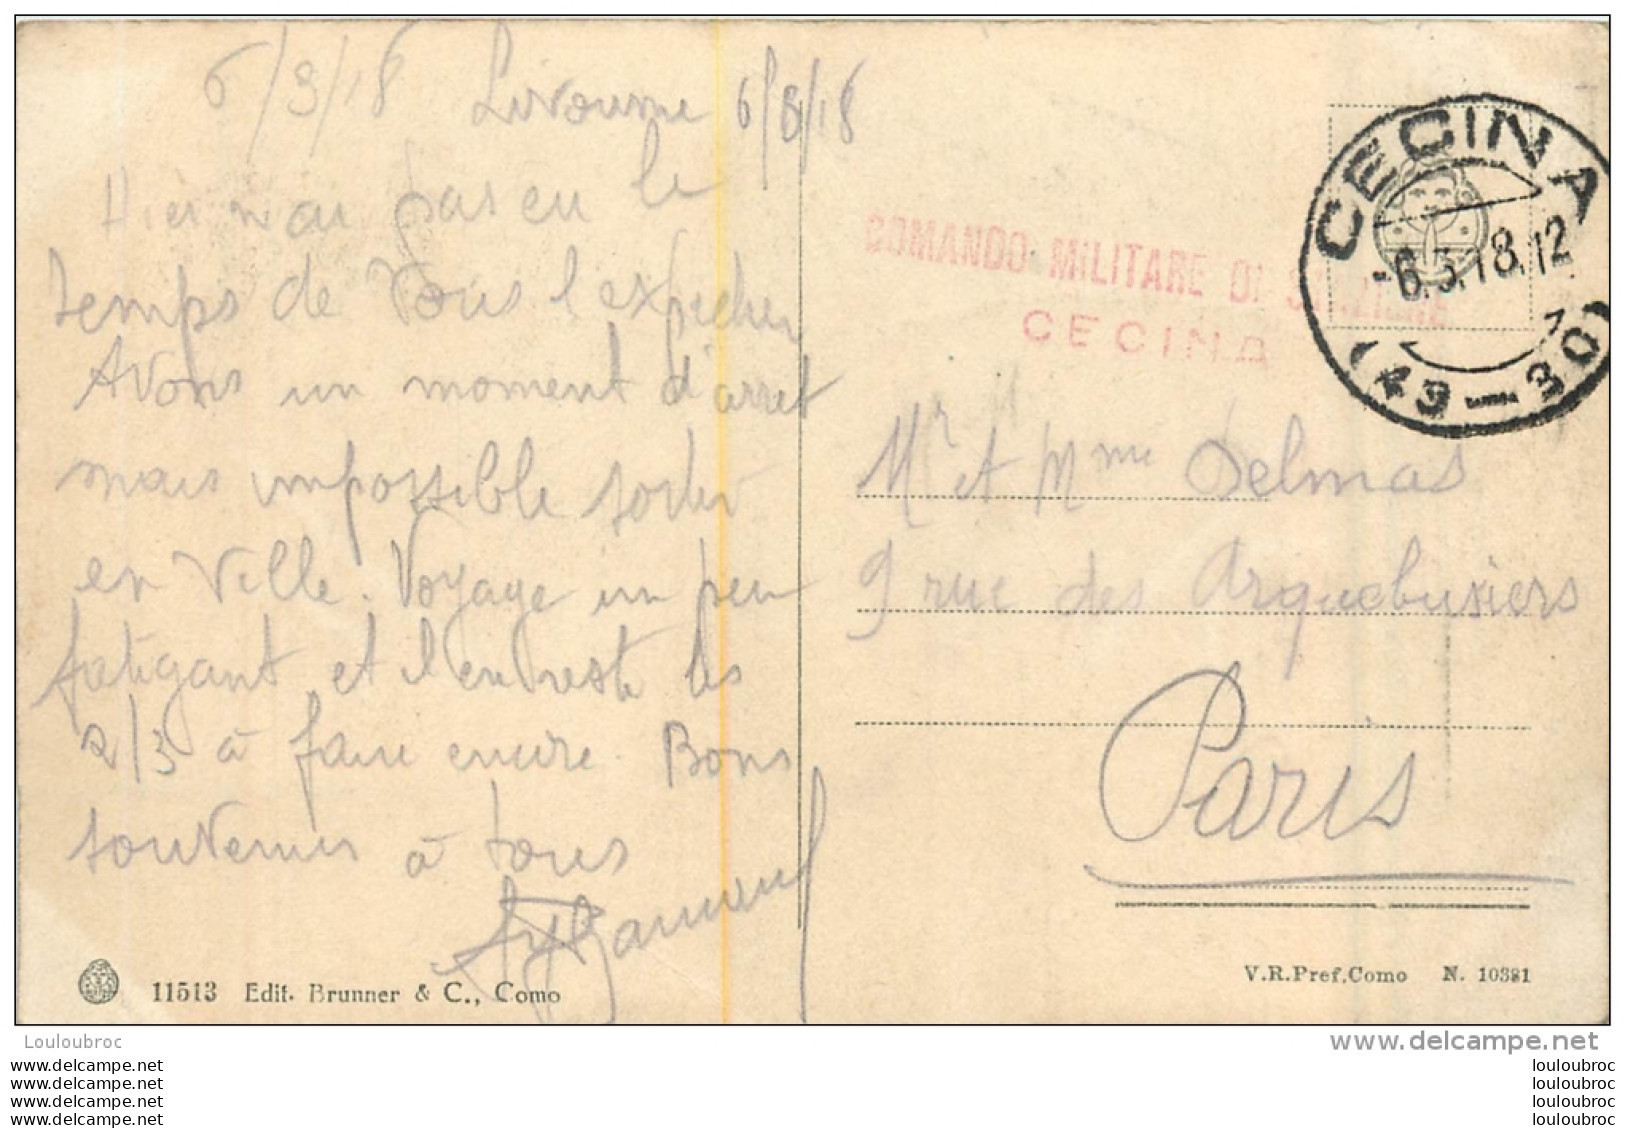 6/3/18 Livourne 6/3/18
Hier n'ai pas eu le
temps de Vous l'expedier
Avons un moment d'arret
mais impossible sortir
en Ville. Voyage un peu
fatigant et il en reste les
2/3 à faire encore. Bons
souvenirs à tous
11513 Edit. Brunner & C., Como
COMANDO MILITARE DI STAZIONE
CECINA
CECINA
-6.3.18.12
(43-30)
Mr et Mme Delmas
9 rue des Arquebusiers
Paris
V.R.Pref.Como N. 10381
Louloubroc
www.delcampe.net
www.delcampe.net
www.delcampe.net
www.delcampe.net
www.delcampe.net
louloubroc
louloubroc
louloubroc
louloubroc